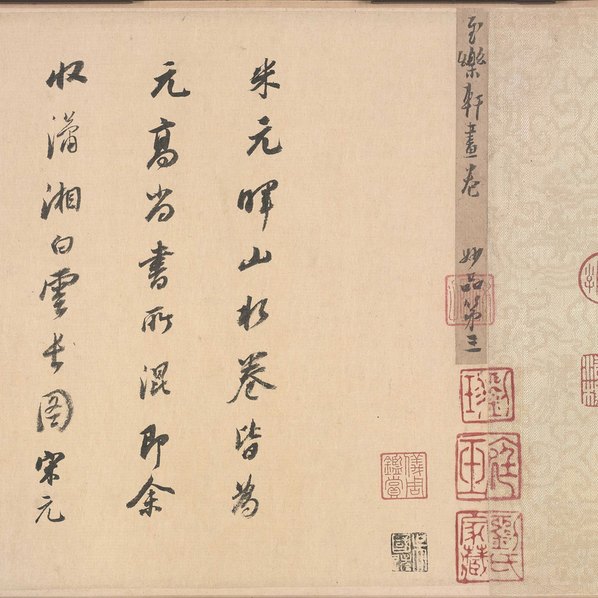 至樂軒畫卷 妙品第三
米元暉山水卷皆為
元高尚書所混即余
收瀟湘白雲長圖宋元
儀周鑑賞
劉氏家藏